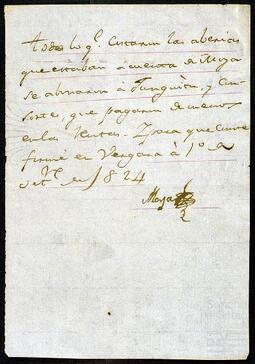 todo lo q.e Costaron las aberias
que estaban à cuenta de Moya
se abonaron à Junguitu, y Con
sorte, que pagaron de menos
en la Renta. Y para que Conste
firmé en Vergara à 1.o de
Set.re de 1824
Moya